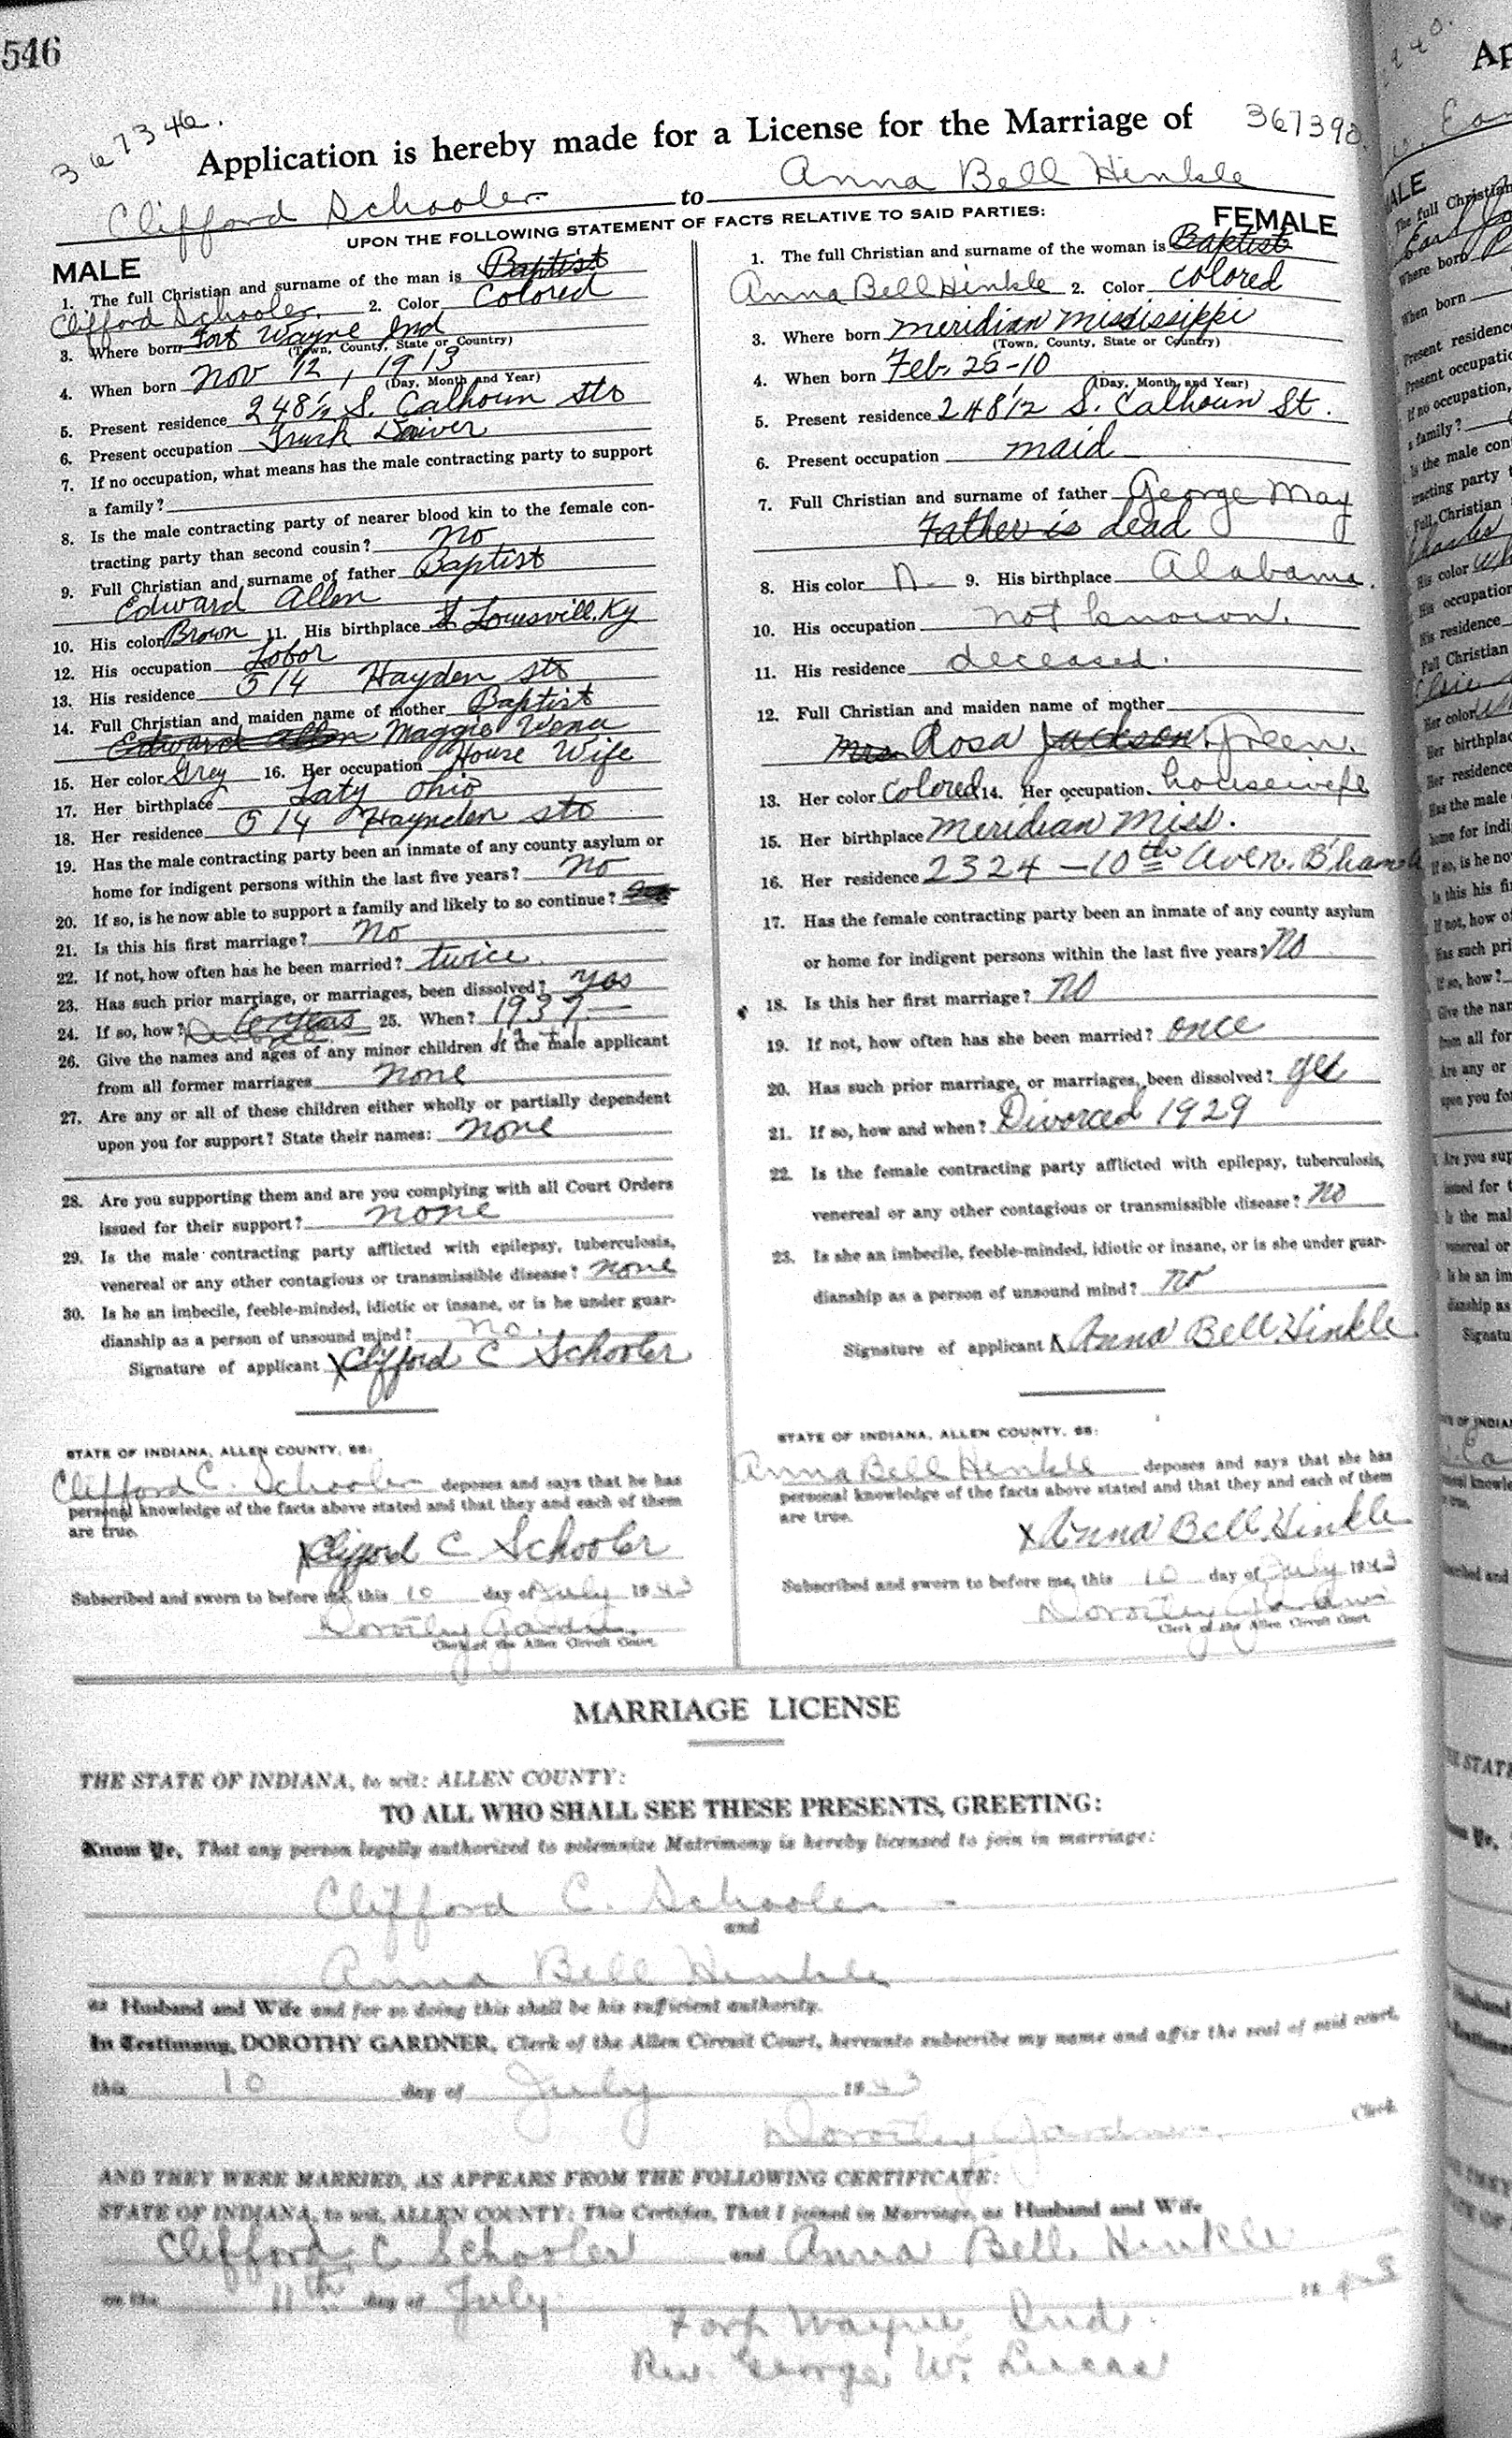 546
367346.
Application is hereby made for a License for the Marriage of 367390
Clifford Schooler to Anna Bell Hinkle
UPON THE FOLLOWING STATEMENT OF FACTS RELATIVE TO SAID PARTIES:
MALE
1. The full Christian and surname of the man is Baptist
Clifford Schooler. 2. Color Colored
3. Where born Fort Wayne Ind
(Town, County, State or Country)
4. When born Nov 12, 1913
(Day, Month and Year)
5. Present residence 248 1/2 S. Calhoun Sts
6. Present occupation Truck Driver
7. If no occupation, what means has the male contracting party to support
a family?
8. Is the male contracting party of nearer blood kin to the female con-
tracting party than second cousin? no
9. Full Christian and surname of father Baptist
Edward Allen
10. His color Brown 11. His birthplace Lousvill, Ky
12. His occupation Lobor
13. His residence 514 Hayden sts
14. Full Christian and maiden name of mother Baptist
Edward Allen Maggie
15. Her color Grey 16. Her occupation House Wife
17. Her birthplace Laty Ohio
18. Her residence 514 Haynden sts
19. Has the male contracting party been an inmate of any county asylum or
home for indigent persons within the last five years? no
20. If so, is he now able to support a family and likely to so continue?
21. Is this his first marriage? no
22. If not, how often has he been married? twice.
23. Has such prior marriage, or marriages, been dissolved? yes
24. If so, how? 25. When? 1937
26. Give the names and ages of any minor children of the male applicant
from all former marriages none
27. Are any or all of these children either wholly or partially dependent
upon you for support? State their names: none
28. Are you supporting them and are you complying with all Court Orders
issued for their support? none
29. Is the male contracting party afflicted with epilepsy, tuberculosis,
venereal or any other contagious or transmissible disease? none
30. Is he an imbecile, feeble-minded, idiotic or insane, or is he under guar-
dianship as a person of unsound mind? no.
Signature of applicant X Clifford C Schooler
STATE OF INDIANA, ALLEN COUNTY, ss:
Clifford C. Schooler deposes and says that he has
personal knowledge of the facts above stated and that they and each of them
are true.
X Clifford C Schooler
Subscribed and sworn to before me, this 10 day of July 1943
Dorothy Gardner
Clerk of the Allen Circuit Court.
FEMALE
1. The full Christian and surname of the woman is Baptist
Anna Bell Hinkle 2. Color colored
3. Where born Meridian Mississippi
(Town, County, State or Country)
4. When born Feb. 25-10
(Day, Month and Year)
5. Present residence 248 1/2 S. Calhoun St.
6. Present occupation maid
7. Full Christian and surname of father George May
Father is dead
8. His color n. 9. His birthplace Alabama.
10. His occupation not known.
11. His residence deceased.
12. Full Christian and maiden name of mother
Mrs. Rosa Jackson Green.
13. Her color Colored 14. Her occupation housewife
15. Her birthplace Meridian Miss.
16. Her residence 2324-10th Aven. B'ham
17. Has the female contracting party been an inmate of any county asylum
or home for indigent persons within the last five years? No
18. Is this her first marriage? no
19. If not, how often has she been married? once
20. Has such prior marriage, or marriages, been dissolved? yes
21. If so, how and when? Divorced 1929
22. Is the female contracting party afflicted with epilepsy, tuberculosis,
venereal or any other contagious or transmissible disease? no
23. Is she an imbecile, feeble-minded, idiotic or insane, or is she under guar-
dianship as a person of unsound mind? no
Signature of applicant X Anna Bell Hinkle
STATE OF INDIANA, ALLEN COUNTY, ss:
Anna Bell Hinkle deposes and says that she has
personal knowledge of the facts above stated and that they and each of them
are true.
X Anna Bell Hinkle
Subscribed and sworn to before me, this 10 day of July 1943
Dorothy Gardner
Clerk of the Allen Circuit Court.
MARRIAGE LICENSE
THE STATE OF INDIANA, to wit: ALLEN COUNTY:
TO ALL WHO SHALL SEE THESE PRESENTS, GREETING:
Know Ye, That any person legally authorized to solemnize Matrimony is hereby licensed to join in marriage:
Clifford C. Schooler
and
Anna Bell Hinkle
as Husband and Wife and for so doing this shall be his sufficient authority.
In Testimony, DOROTHY GARDNER, Clerk of the Allen Circuit Court, hereunto subscribe my name and affix the seal of said court,
this 10 day of July 1943
Dorothy Gardner, Clerk
AND THEY WERE MARRIED, AS APPEARS FROM THE FOLLOWING CERTIFICATE:
STATE OF INDIANA, to wit, ALLEN COUNTY: This Certifies, That I joined in Marriage, as Husband and Wife
Clifford C Schooler and Anna Bell Hinkle
on the 11th day of July 1943
Fort Wayne Ind.
Rev. George W. Lucas